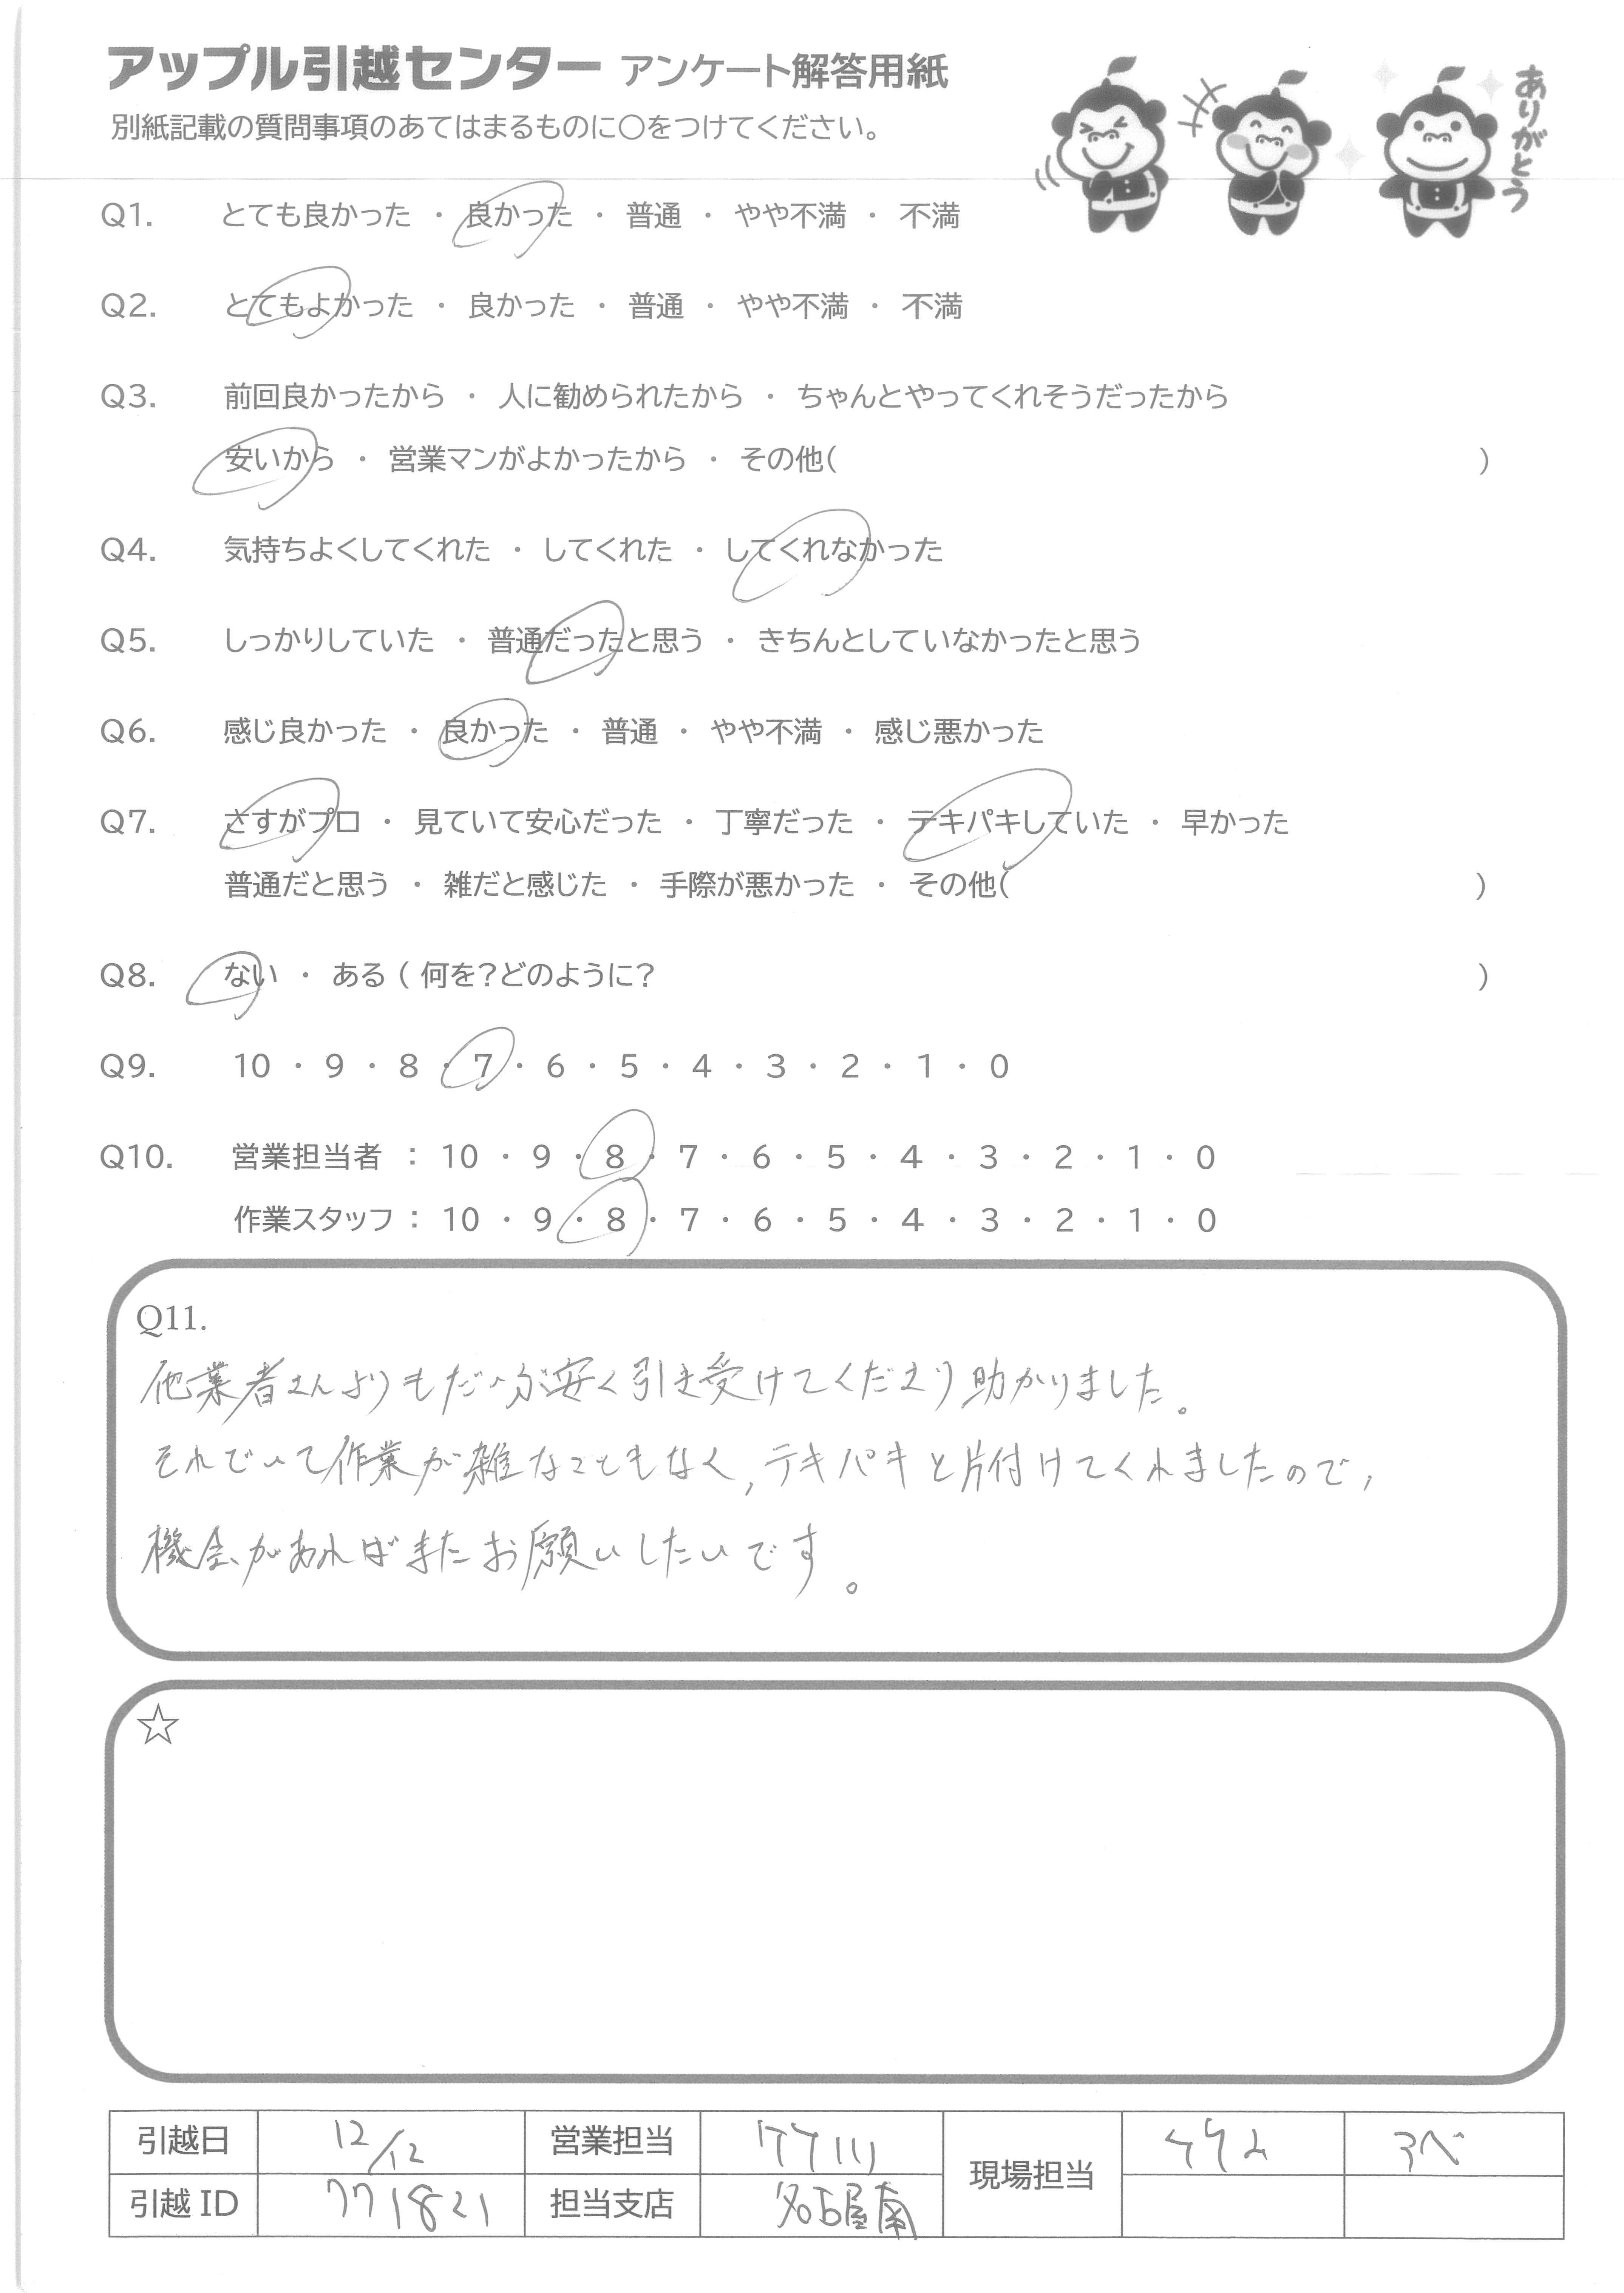 アップル引越センター アンケート解答用紙
別紙記載の質問事項のあてはまるものに○をつけてください。
ありがとう
Q1. とても良かった ・ 良かった ・ 普通 ・ やや不満 ・ 不満
Q2. とてもよかった ・ 良かった ・ 普通 ・ やや不満 ・ 不満
Q3. 前回良かったから ・ 人に勧められたから ・ ちゃんとやってくれそうだったから
安いから ・ 営業マンがよかったから ・ その他( )
Q4. 気持ちよくしてくれた ・ してくれた ・ してくれなかった
Q5. しっかりしていた ・ 普通だったと思う ・ きちんとしていなかったと思う
Q6. 感じ良かった ・ 良かった ・ 普通 ・ やや不満 ・ 感じ悪かった
Q7. さすがプロ ・ 見ていて安心だった ・ 丁寧だった ・ テキパキしていた ・ 早かった
普通だと思う ・ 雑だと感じた ・ 手際が悪かった ・ その他( )
Q8. ない ・ ある ( 何を?どのように? )
Q9. 10 ・ 9 ・ 8 ・ 7 ・ 6 ・ 5 ・ 4 ・ 3 ・ 2 ・ 1 ・ 0
Q10. 営業担当者 : 10 ・ 9 ・ 8 ・ 7 ・ 6 ・ 5 ・ 4 ・ 3 ・ 2 ・ 1 ・ 0
作業スタッフ : 10 ・ 9 ・ 8 ・ 7 ・ 6 ・ 5 ・ 4 ・ 3 ・ 2 ・ 1 ・ 0
Q11.
他業者さんよりもだいぶ安く引き受けてくださり助かりました。
それでいて作業が雑なこともなく、テキパキと片付けてくれましたので、
機会があればまたお願いしたいです。
☆
引越日 12/12 営業担当 現場担当 アベ
引越 ID 771821 担当支店 名古屋南